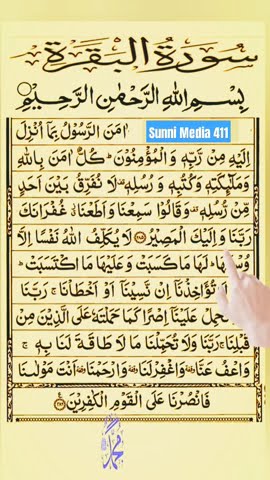 سُوْرَةُ الْبَقَرَةِ
بِسْمِ اللهِ الرَّحْمٰنِ الرَّحِيْمِ
اٰمَنَ الرَّسُوْلُ بِمَاۤ اُنْزِلَ
Sunni Media 411
اِلَيْهِ مِنْ رَّبِّهٖ وَالْمُؤْمِنُوْنَ ؕ كُلٌّ اٰمَنَ بِاللهِ
وَمَلٰٓئِكَتِهٖ وَكُتُبِهٖ وَرُسُلِهٖ ۟ لَا نُفَرِّقُ بَيْنَ اَحَدٍ
مِّنْ رُّسُلِهٖ ۟ وَقَالُوْا سَمِعْنَا وَاَطَعْنَا ٭۫ غُفْرَانَكَ
رَبَّنَا وَاِلَيْكَ الْمَصِيْرُ ﴿۲۸۵﴾ لَا يُكَلِّفُ اللهُ نَفْسًا اِلَّا
لَهَا مَا كَسَبَتْ وَعَلَيْهَا مَا اكْتَسَبَتْ ؕ
تُؤَاخِذْنَاۤ اِنْ نَّسِيْنَاۤ اَوْ اَخْطَاْنَا ۚ رَبَّنَا
عَلَيْنَاۤ اِصْرًا كَمَا حَمَلْتَهٗ عَلَى الَّذِيْنَ مِنْ
قَبْلِنَا ۚ رَبَّنَا وَلَا تُحَمِّلْنَا مَا لَا طَاقَةَ لَنَا بِهٖ ۚ
وَاعْفُ عَنَّا ٝ وَاغْفِرْ لَنَا ٝ وَارْحَمْنَا ٝ اَنْتَ مَوْلٰىنَا
فَانْصُرْنَا عَلَى الْقَوْمِ الْكٰفِرِيْنَ ﴿۲۸۶﴾